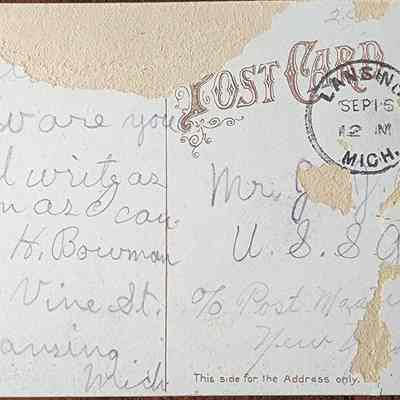 POST CARD
LANSING
SEP 15
12 M
MICH.
w are you
l write as
n as I can
H. Bowman
Vine St.
ansing
Mich
Mr. J.
U. S. S
c/o Post
New
This side for the Address only.